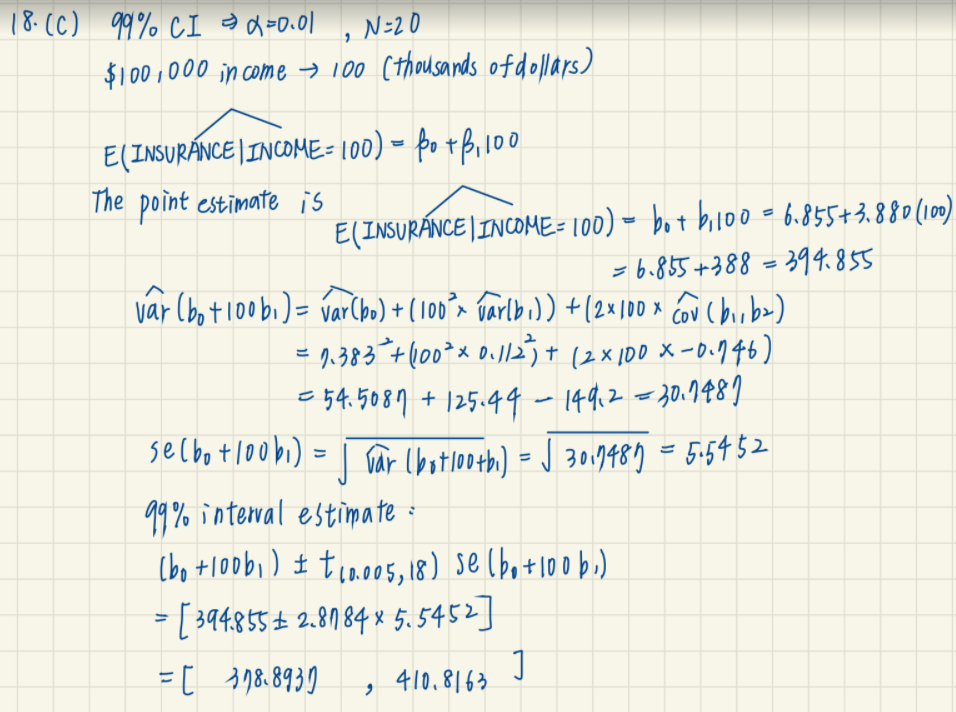 18.(C) 99% CI ⇒ α=0.01 , N=20
$100,000 income → 100 (thousands of dollars)
E(INSURANCE|INCOME=100) = β₀ + β₁100
The point estimate is
E(INSURANCE|INCOME=100) = b₀ + b₁100 = 6.855+3.880(100)
= 6.855+388 = 394.855
v̂ar(b₀+100b₁) = v̂ar(b₀) + (100² × v̂ar(b₁)) + (2×100 × ĉov(b₁,b₂)
= 7.383² + (100² × 0.112²) + (2×100 × -0.746)
= 54.5087 + 125.44 - 149.2 = 30.7487
se(b₀+100b₁) = √v̂ar(b₀+100+b₁) = √30.7487 = 5.5452
99% interval estimate :
(b₀+100b₁) ± t(0.005,18) se(b₀+100b₁)
= [394.855 ± 2.8784 × 5.5452]
= [ 378.8937 , 410.8163 ]